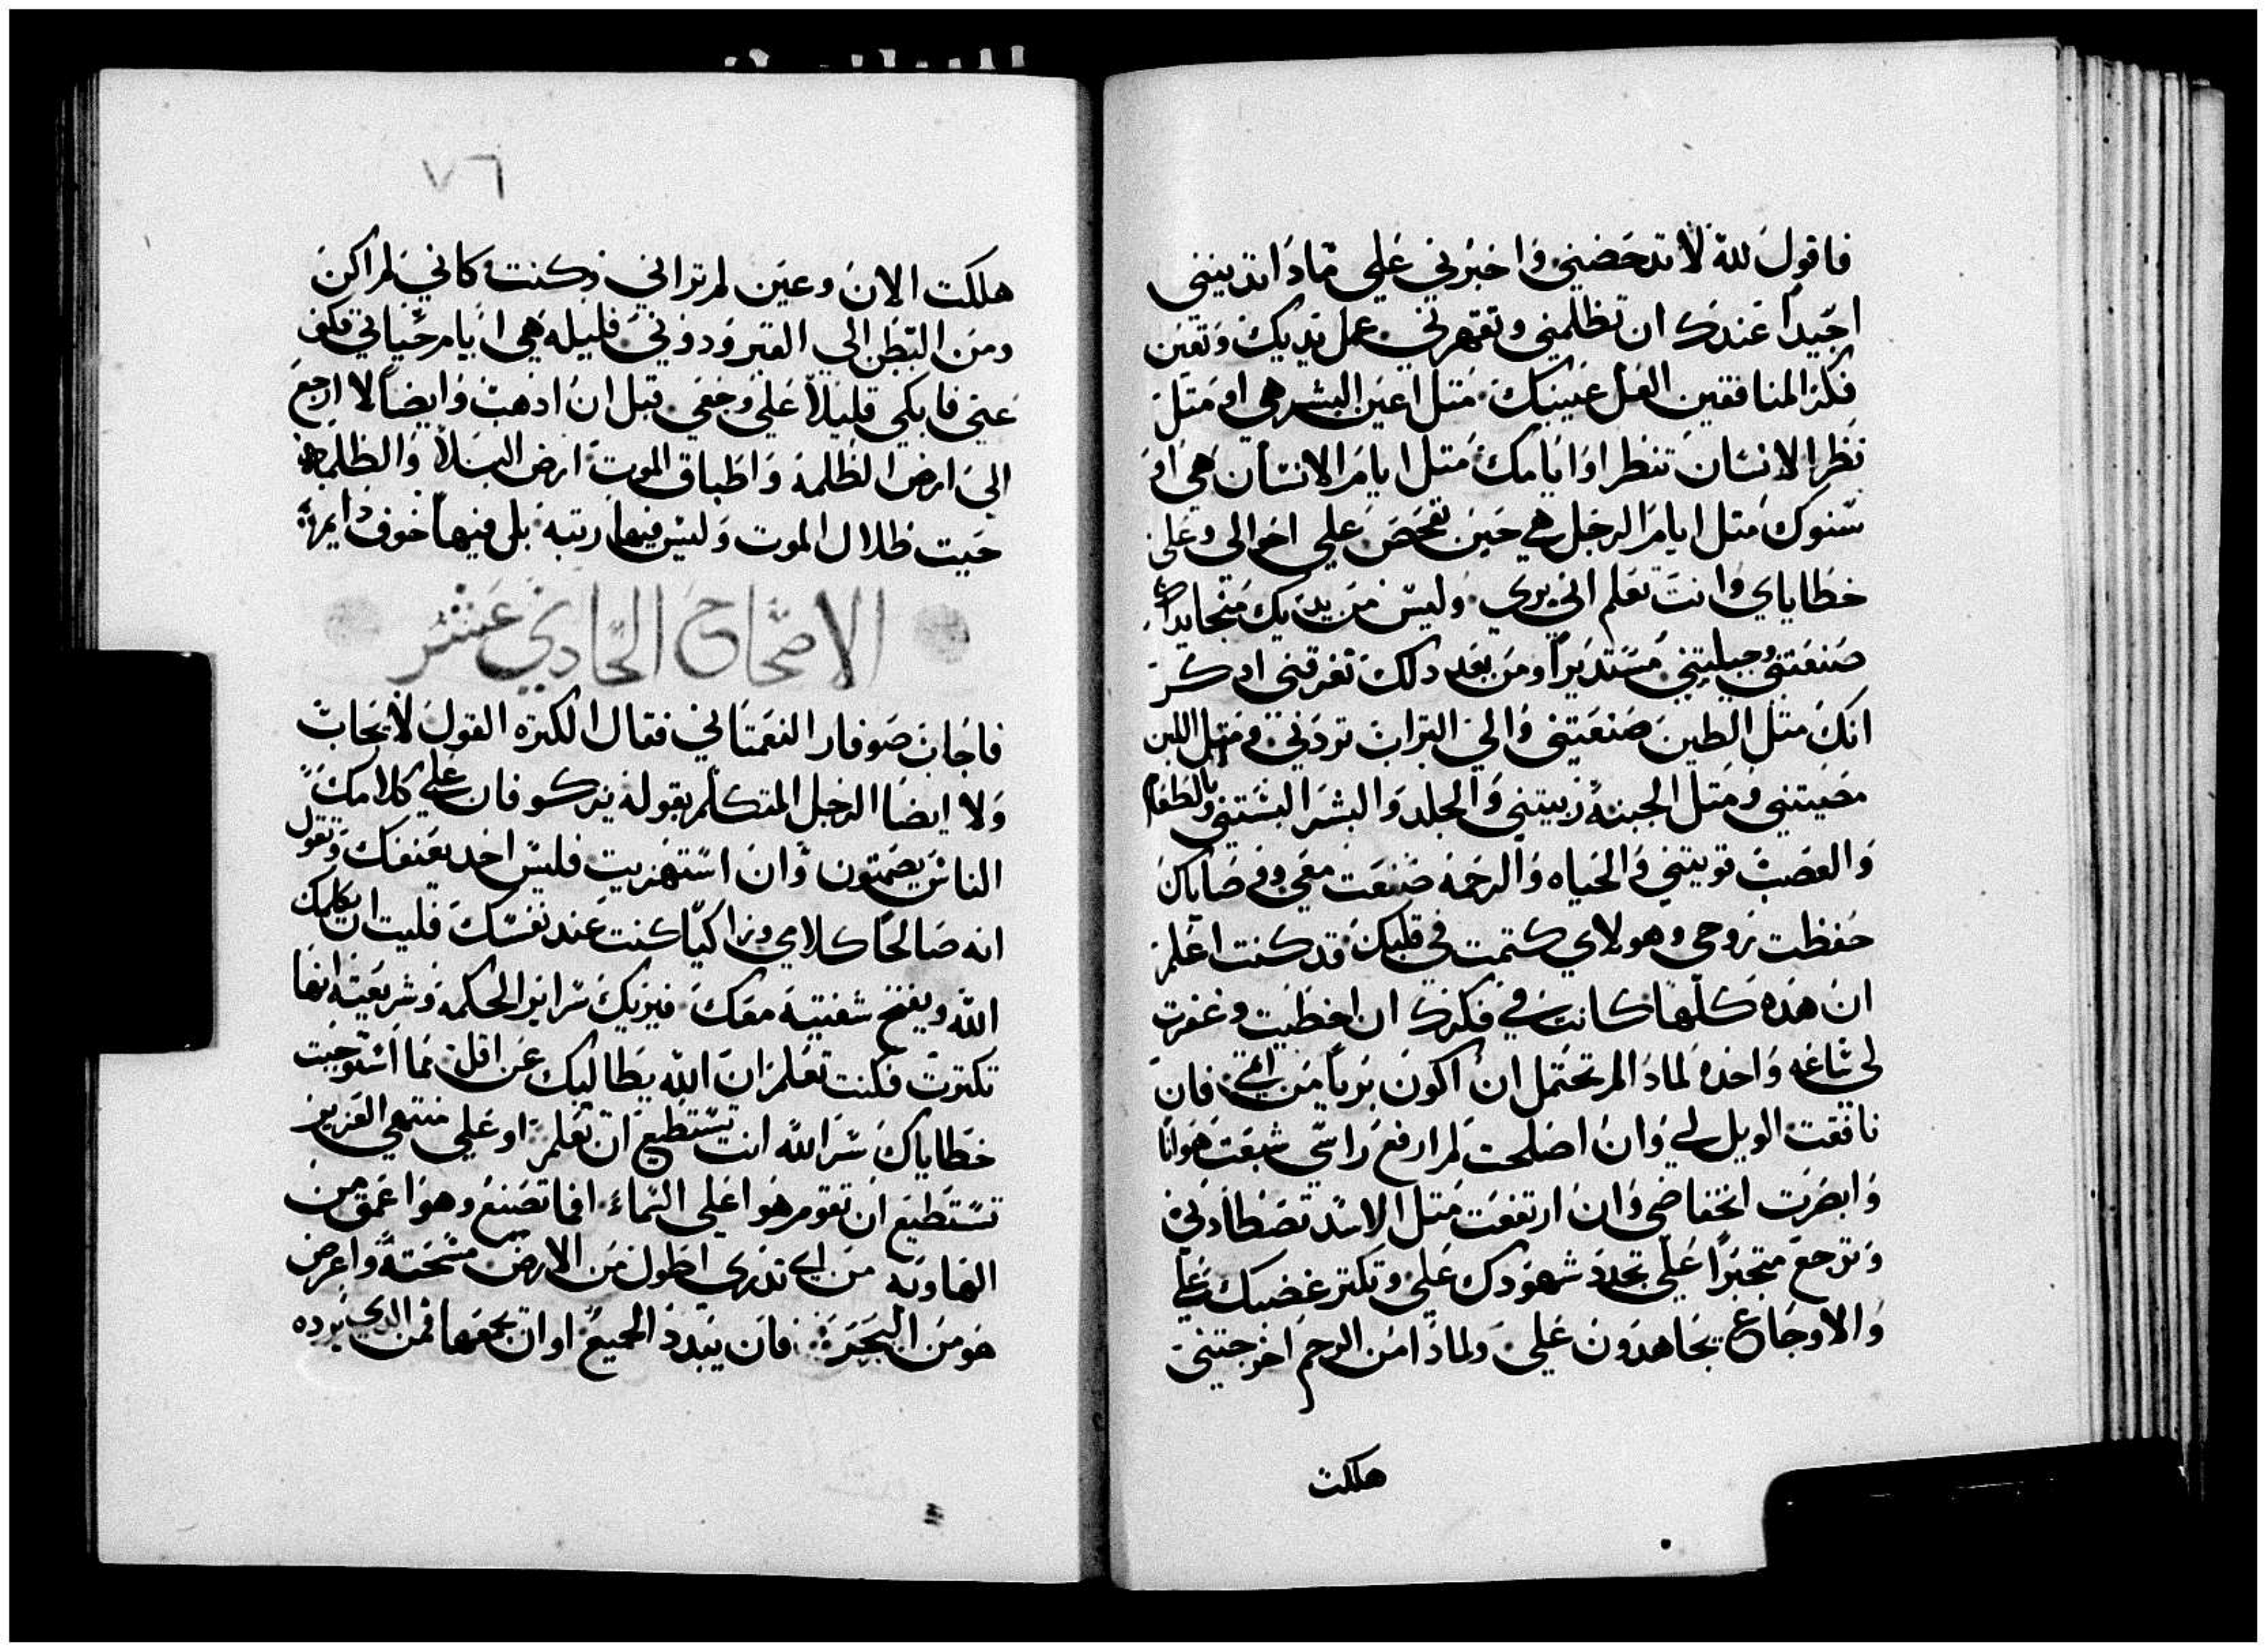 فاقول لله لا تدحضني واخبرني علي مادا تدينني
اجيدا عندك ان تظلمني وتقهرني عمل يديك وتعين
فكر المنافقين العل عينيك متل اعين البشر هي او متل
نظر الانسان تنظر او ايامك متل ايام الانسان هي او
سنوك متل ايام الرجل هي حين تفحص علي احوالي وعلي
خطاياي وانت تعلم اني بري وليس من يديك منجا يداك
صنعتني وجبلتني مستديرا ومن بعد دلك تغرقني ادكر
انك متل الطين صنعتني والي التراب تردني ومتل اللبن
مصيتني ومتل الجبنه ربيتني والجلد والبشر البستني وبالعظام
والعصب قويتني والحياه والرحمه صنعت معي ووصاياك
حفظت روحي وهولاي كتمت في قلبك قد كنت اعلم
ان هده كلها كانت في فكرك ان اخطيت وغفرت
لي ساعه واحده لمادا لم تحتمل ان اكون بريا من اتمي فان
نافقت الويل لي وان اصلحت لم ارفع راسي شبعت هوانا
وابصرت انخفاضي وان ارتفعت متل الاسد تصطادني
وترجع متجبرا علي تجدد شهودك علي وتكتر غضبك علي
والاوجاع يجاهدون علي ولمادا من الرحم اخرجتني
هللكت
٧٦
هللكت الان وعين لم تراني وكنت كاني لم اكن
ومن البطن الي القبر ودوني قليله هي ايام حياتي فكف
عني فابكي قليلا علي وجعي قبل ان ادهب وايضا لا ارجع
الي ارض الظلمه واطباق الموت ارض البلا والظلمه
حيت ظلال الموت وليس فيها رتبه بل فيها خوف دايم
الاصحاح الحادي عشر
فاجاب صوفار النعمتاني فقال الكترة القول لا يجاب
ولا ايضا الرجل المتكلم بقوله يزكو فان علي كلامك
الناس يصمتون وان استهزيت فليس احد يعنفك وتقول
انه صالحا كلامي وزاكيا كنت عند نفسك فليت ان يكلمك
الله ويفتح شفتيه معك فيريك سراير الحكمه وشريعته انها
تكترت فكنت تعلم ان الله يطالبك عن اقل مما استوجبت
خطاياك سر الله انت تستطيع ان تعلم او علي منتهي العزيز
تستطيع ان تقوم هو اعلي السماء افما تصنع وهو اعمق من
الهاويه من اي تدري اطول من الارض مسحته واعرض
هو من البحر فان يبدد الجميع او ان يجمعها فمن الدي يرده